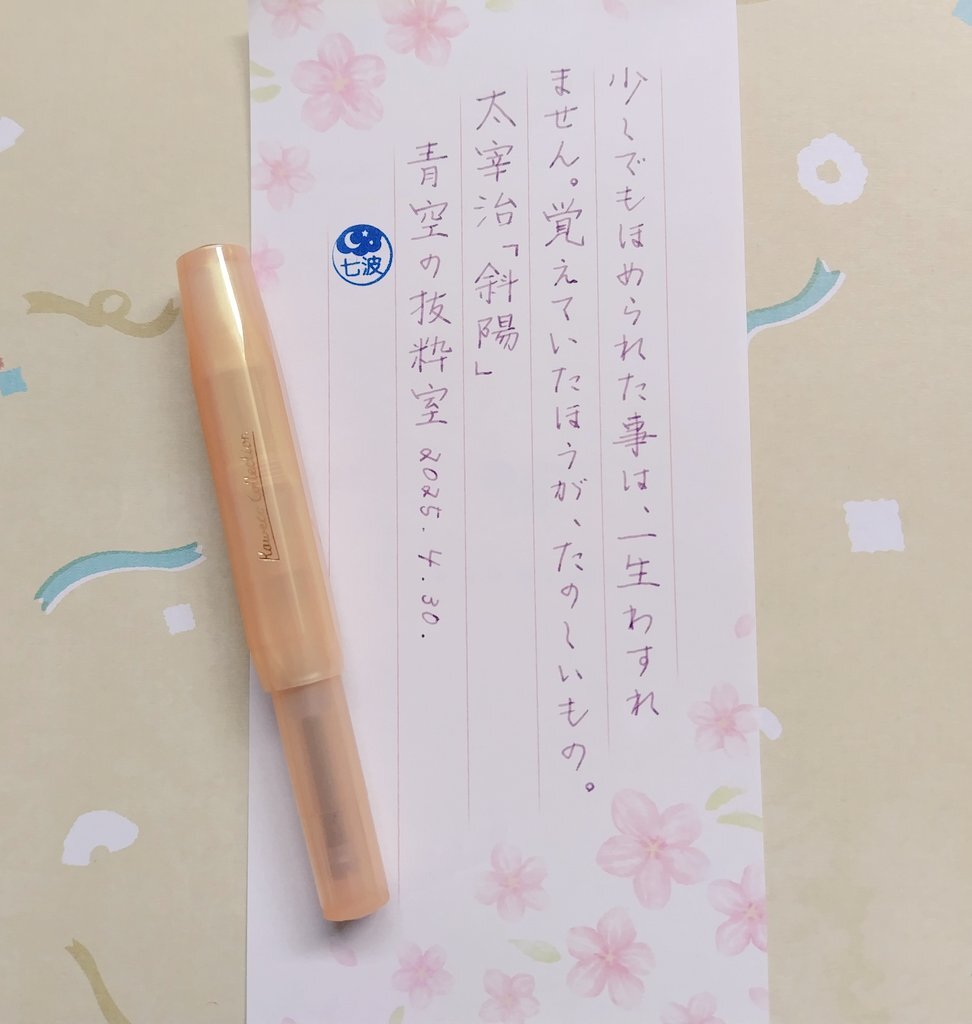 少しでもほめられた事は、一生わすれ
ません。覚えていたほうが、たのしいもの。
太宰治「斜陽」
青空の抜粋室 2025.4.30.
七波
Kaweco Collection